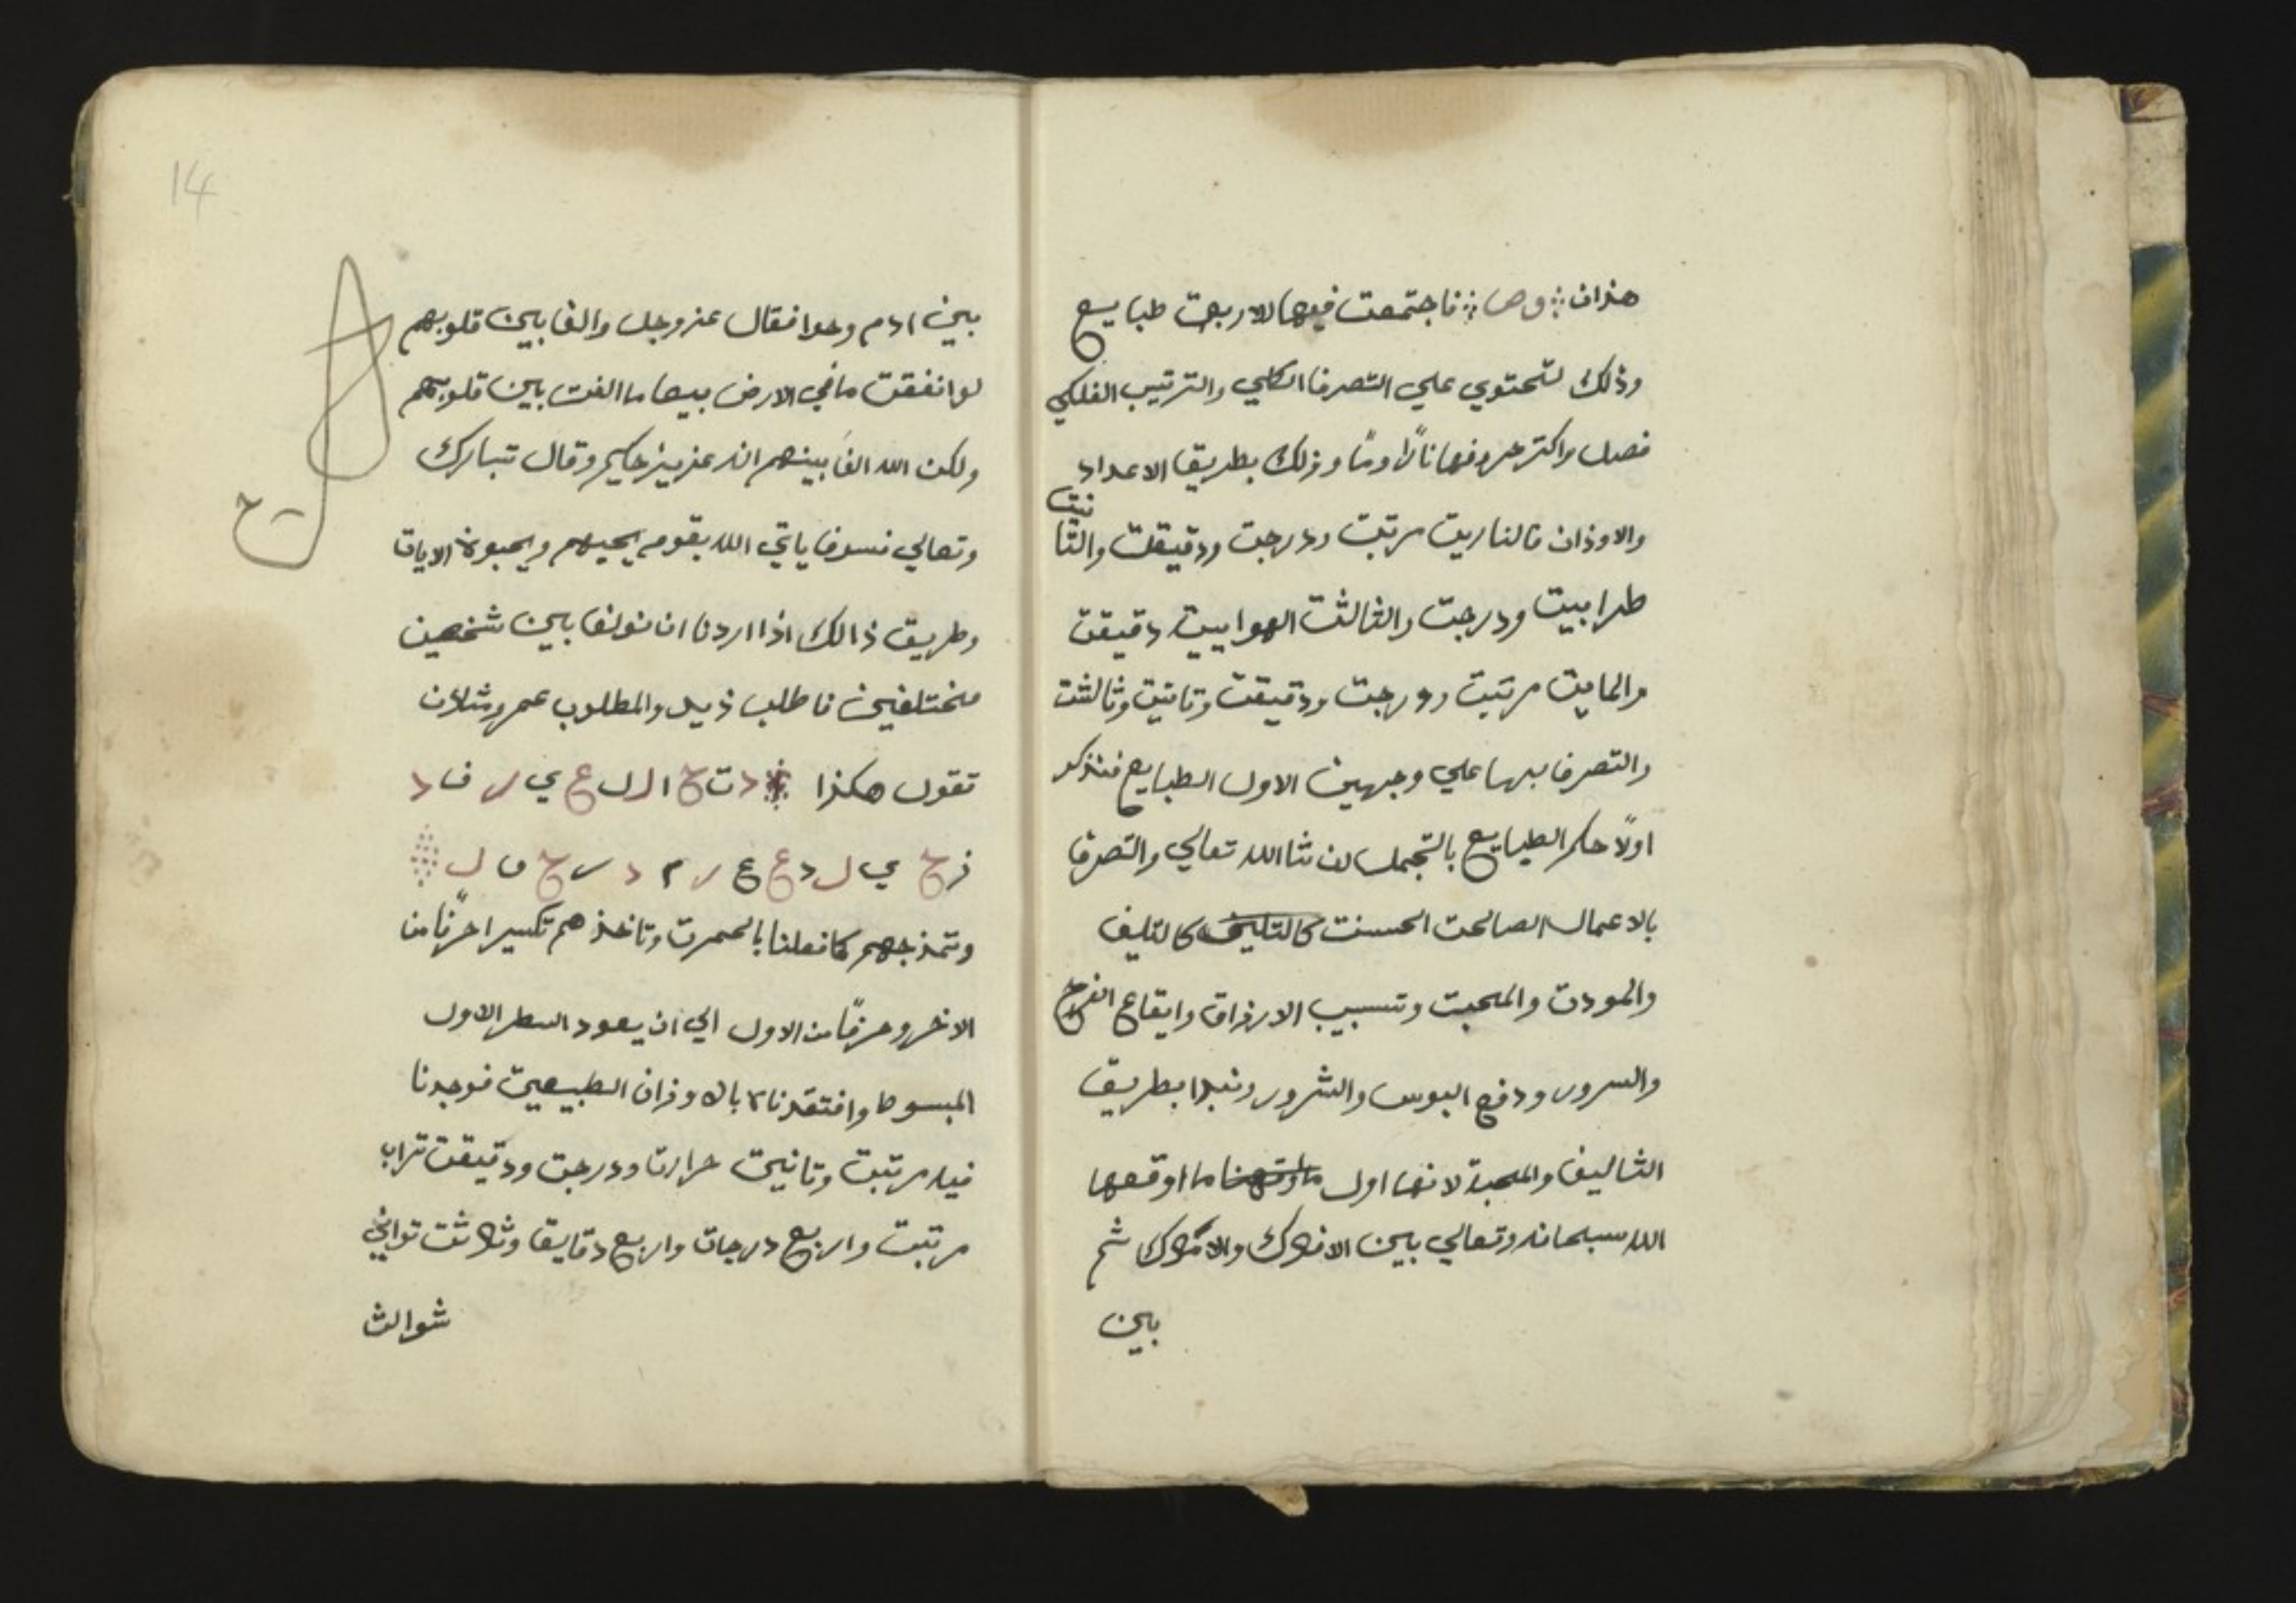 هذان ⁘ وها ⁘ فاجتمعت فيها الاربعت طبايع
وذلك لتحتوي علي التصرف الكلي والترتيب الفلكي
فصل واكتر حروفها نارًا ومًا وذلك بطريق الاعداد
والاوذان فالناريت مرتبت ودرجت ودقيقت والثا
نيت
طرابيت ودرجت والثالثت الهواييت دقيقت
والمايت مرتبت ودرجت ودقيقت وتانيت وثالثت
والتصرف بها علي وجهين الاول الطبايع فنذكر
اولًا حكم الطبايع بالتجمل ان شا الله تعالي والتصرف
بالاعمال الصالحت الحسنت كالتليف كالتليف
والمودت والمحبت وتسبيب الارذاق وايقاع الفرح
والسرور ودفع البوس والشرور ونبدا بطريق
التاليف والمحبة لانها اول ما اوقعها
الله سبحانه وتعالي بين الافلاك والاملاك ثم
بين
14
بين ادم وحوا فقال عز وجل والف بين قلوبهم
لو انفقت ما في الارض جميعا ما الفت بين قلوبهم
ولكن الله الف بينهم انه عزيز حكيم وقال تبارك
وتعالي فسوف ياتي الله بقوم يحبهم ويحبونه الايات
وطريق ذالك اذا اردنا ان نولف بين شخصين
مختلفين فاطلب ذيد والمطلوب عمر وشلان
تقول هكذا د ت ح ا ل ل ع ي ر ف د
ذ ح ي ل د ع ع ر م د ر ح ف ل
وتمذجهم كما فعلنا بالحمرت وتاخذهم تكسير احرفًا من
الاخر وحرفًا من الاول الي ان يعود السطر الاول
المبسوط وافتقدناه بالاوذان الطبيعيت فوجدنا
فيه مرتبت وتانيت حرارت ودرجت ودقيقت تراب
مرتبت واربع درجات واربع دقايق وثلاثت تواني
شوالث